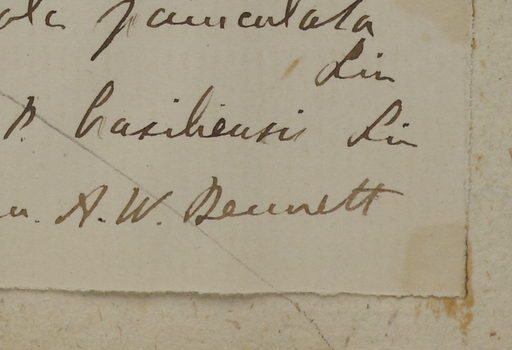 ola paniculata
Lin
P. brasiliensis Lin
A. W. Bennett